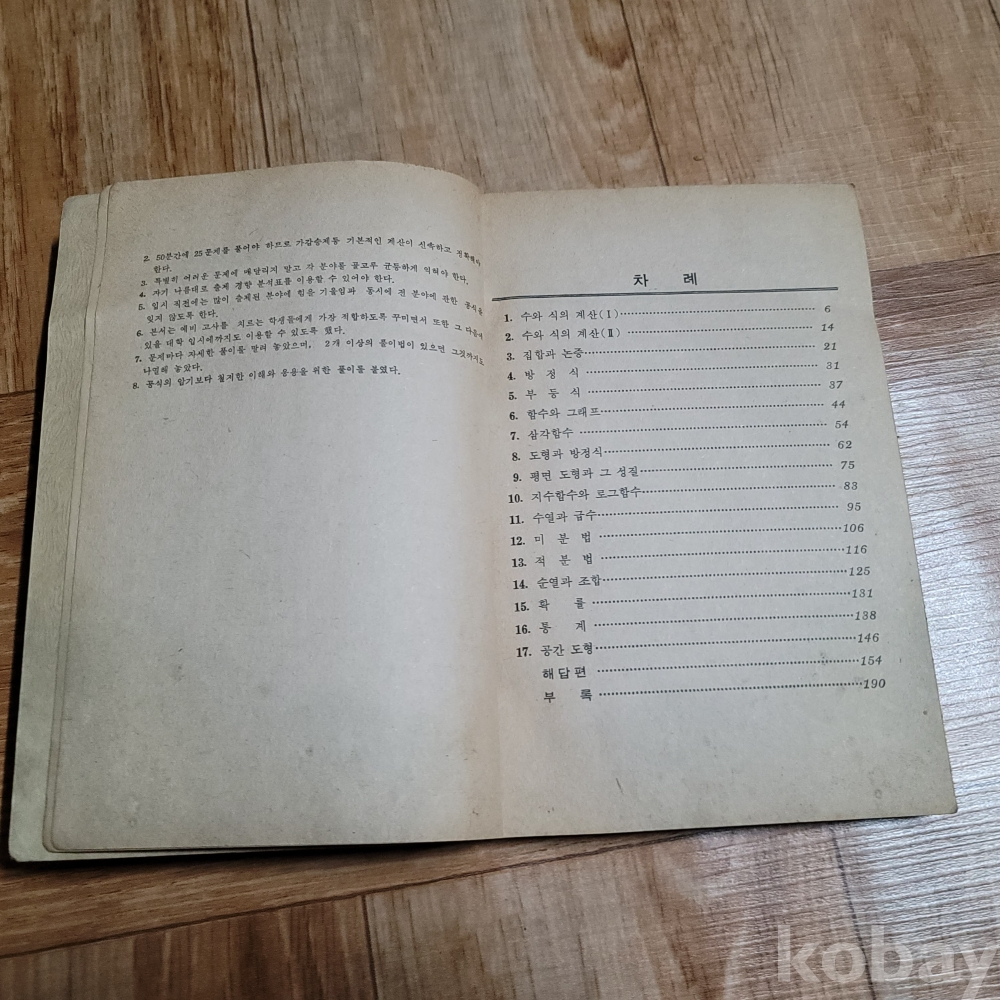 2. 50분간에 25문제를 풀어야 하므로 가감승제등 기본적인 계산이 신속하고 정확해야
한다.
3. 특별히 어려운 문제에 매달리지 말고 각 분야를 골고루 균등하게 익혀야 한다.
4. 자기 나름대로 출제 경향 분석표를 이용할 수 있어야 한다.
5. 입시 직전에는 많이 출제된 분야에 힘을 기울임과 동시에 전 분야에 관한 공식을
잊지 않도록 한다.
6. 본서는 예비 고사를 치르는 학생들에게 가장 적합하도록 꾸미면서 또한 그 다음에
있을 대학 입시에까지도 이용할 수 있도록 했다.
7. 문제마다 자세한 풀이를 달려 놓았으며, 2개 이상의 풀이법이 있으면 그것까지도
나열해 놓았다.
8. 공식의 암기보다 철저한 이해와 응용을 위한 풀이를 붙였다.
차 례
1. 수와 식의 계산(Ⅰ) 6
2. 수와 식의 계산(Ⅱ) 14
3. 집합과 논증 21
4. 방 정 식 31
5. 부 등 식 37
6. 함수와 그래프 44
7. 삼각함수 54
8. 도형과 방정식 62
9. 평면 도형과 그 성질 75
10. 지수함수와 로그함수 83
11. 수열과 급수 95
12. 미 분 법 106
13. 적 분 법 116
14. 순열과 조합 125
15. 확 률 131
16. 통 계 138
17. 공간 도형 146
해답편 154
부 록 190
kobay